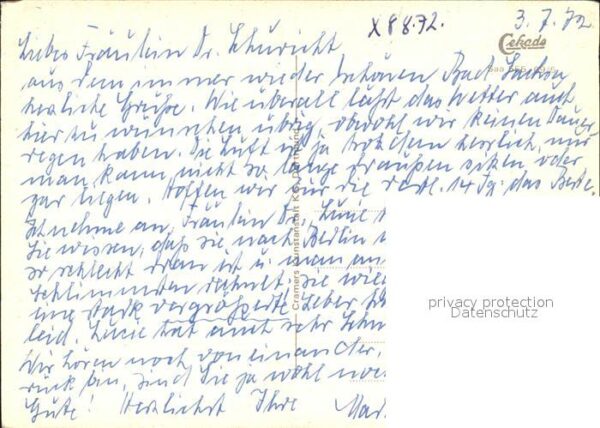 X 8 8.72.
3. 7. 72
Cekade
Liebes Fräulein Dr. Schuricht
aus dem immer wieder schönen Bad
herzliche Grüße. Wie überall läßt das Wetter auch
hier zu wünschen übrig, obwohl wir keinen Dauer
regen haben. Die Luft ist ja trotzdem herrlich, nur
man kann nicht so lange draußen sitzen oder
gar liegen. Hoffen wir für die restl. 14 Tg. das Beste.
Ich nehme an, Fräulein Dr., Lucie
Sie wissen, daß sie nach Berlin
so schlecht dran ist u. man
schlimmsten rechnet. sie
eine stark vergrößerte Leber
leid. Lucie hat auch sehr
Wir hören noch voneinander,
rück bin, sind Sie ja wohl
Gute! Herzlichst Ihre Mar
Cramers Kunstanstalt KG, Dortmund
privacy protection
Datenschutz